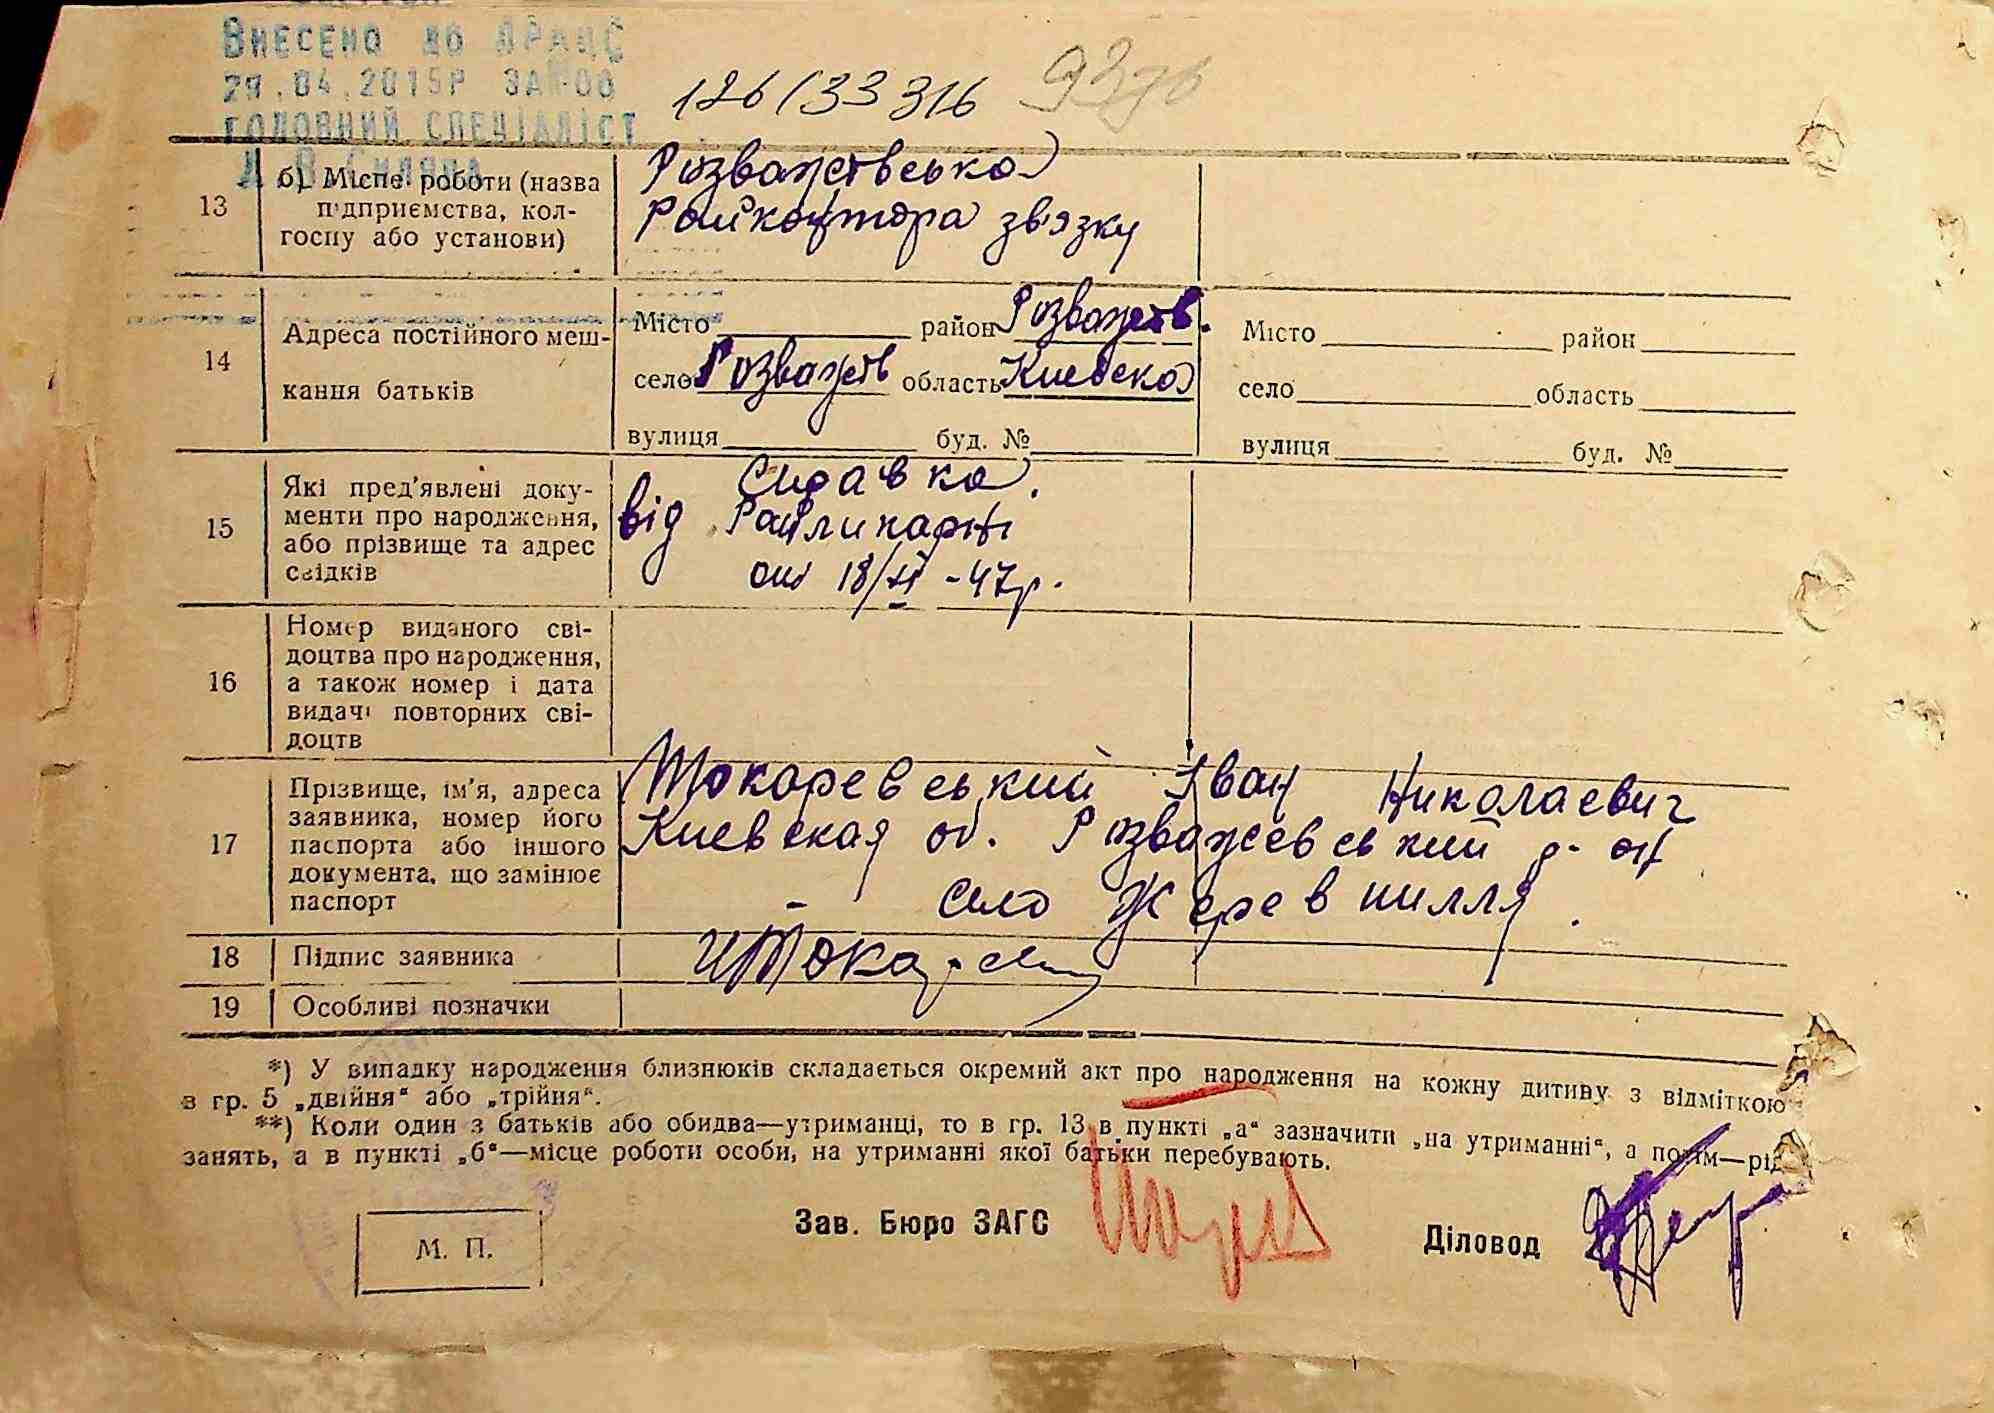 Внесено до ДРАЦС
29.04.2015р за №00
головний спеціаліст
126/33 316
13 б) Місце роботи (назва підприємства, колгоспу або установи)
Розважевська
Райконтора зв'язку
14 Адреса постійного мешкання батьків
Місто район Розважев. Місто район
село Розважев область Киевска село область
вулиця буд. № вулиця буд. №
15 Які пред'явлені документи про народження, або прізвище та адрес свідків
Справка.
від Райликарні
18/ -47р.
16 Номер виданого свідоцтва про народження, а також номер і дата видачі повторних свідоцтв
17 Прізвище, ім'я, адреса заявника, номер його паспорта або іншого документа, що замінює паспорт
Токаревський Іван Николаевич
Киевская об. Розважевський р-он
село Жеревпилля.
18 Підпис заявника
19 Особливі позначки
*) У випадку народження близнюків складається окремий акт про народження на кожну дитину з відміткою
в гр. 5 „двійня“ або „трійня“.
**) Коли один з батьків або обидва—утриманці, то в гр. 13 в пункті „а“ зазначити „на утриманні“, а потім—рід
занять, а в пункті „б“—місце роботи особи, на утриманні якої батьки перебувають.
Зав. Бюро ЗАГС
Діловод
М. П.